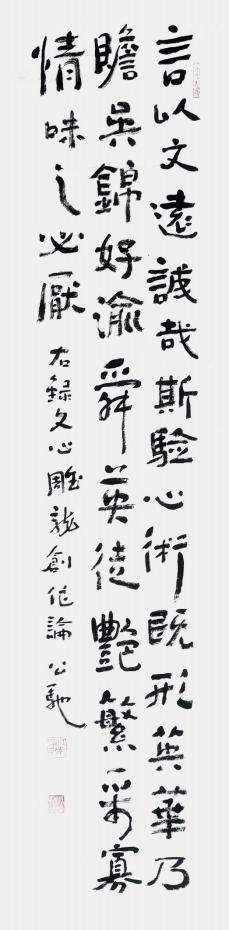 言以文遠誠哉斯驗心術既形英華乃
瞻吳錦好渝舜英徒艷繁采寡
情味之必厭
右録文心雕龍創作論 公馳